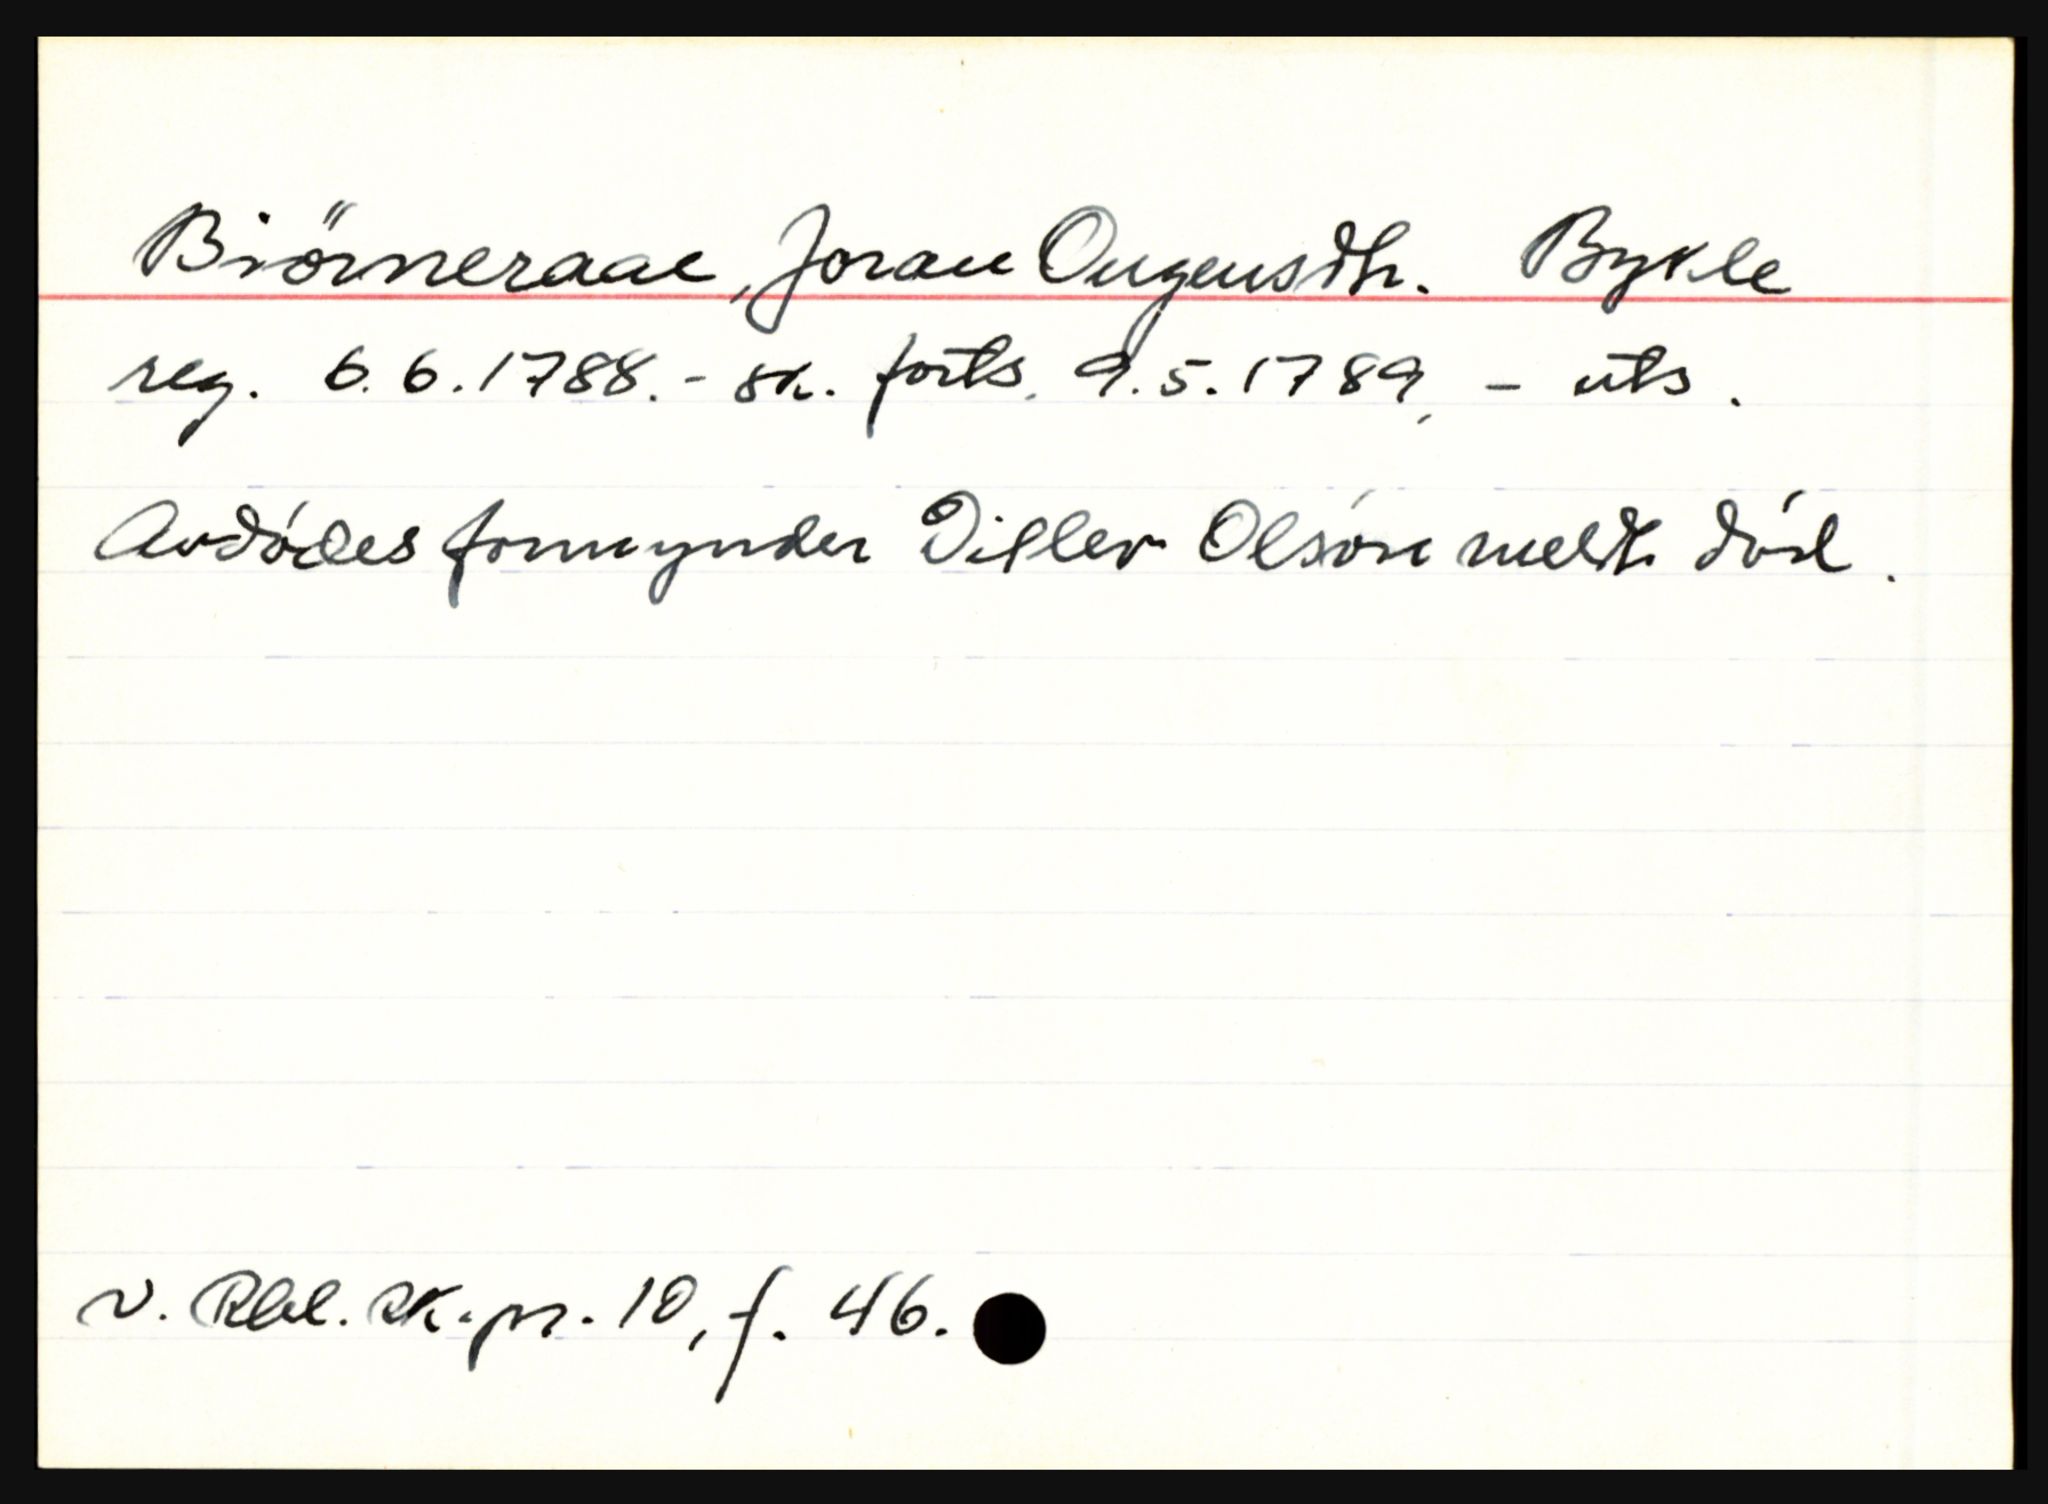 Biörneraae, Joran Ougensdtr. Bykle
reg. 6.6.1788. - sk. forts. 9.5.1789, - uts.
Avdódes formynder Ditlev Olsón meldt dód.
v. Rbl. sk.pr. 10, f. 46.